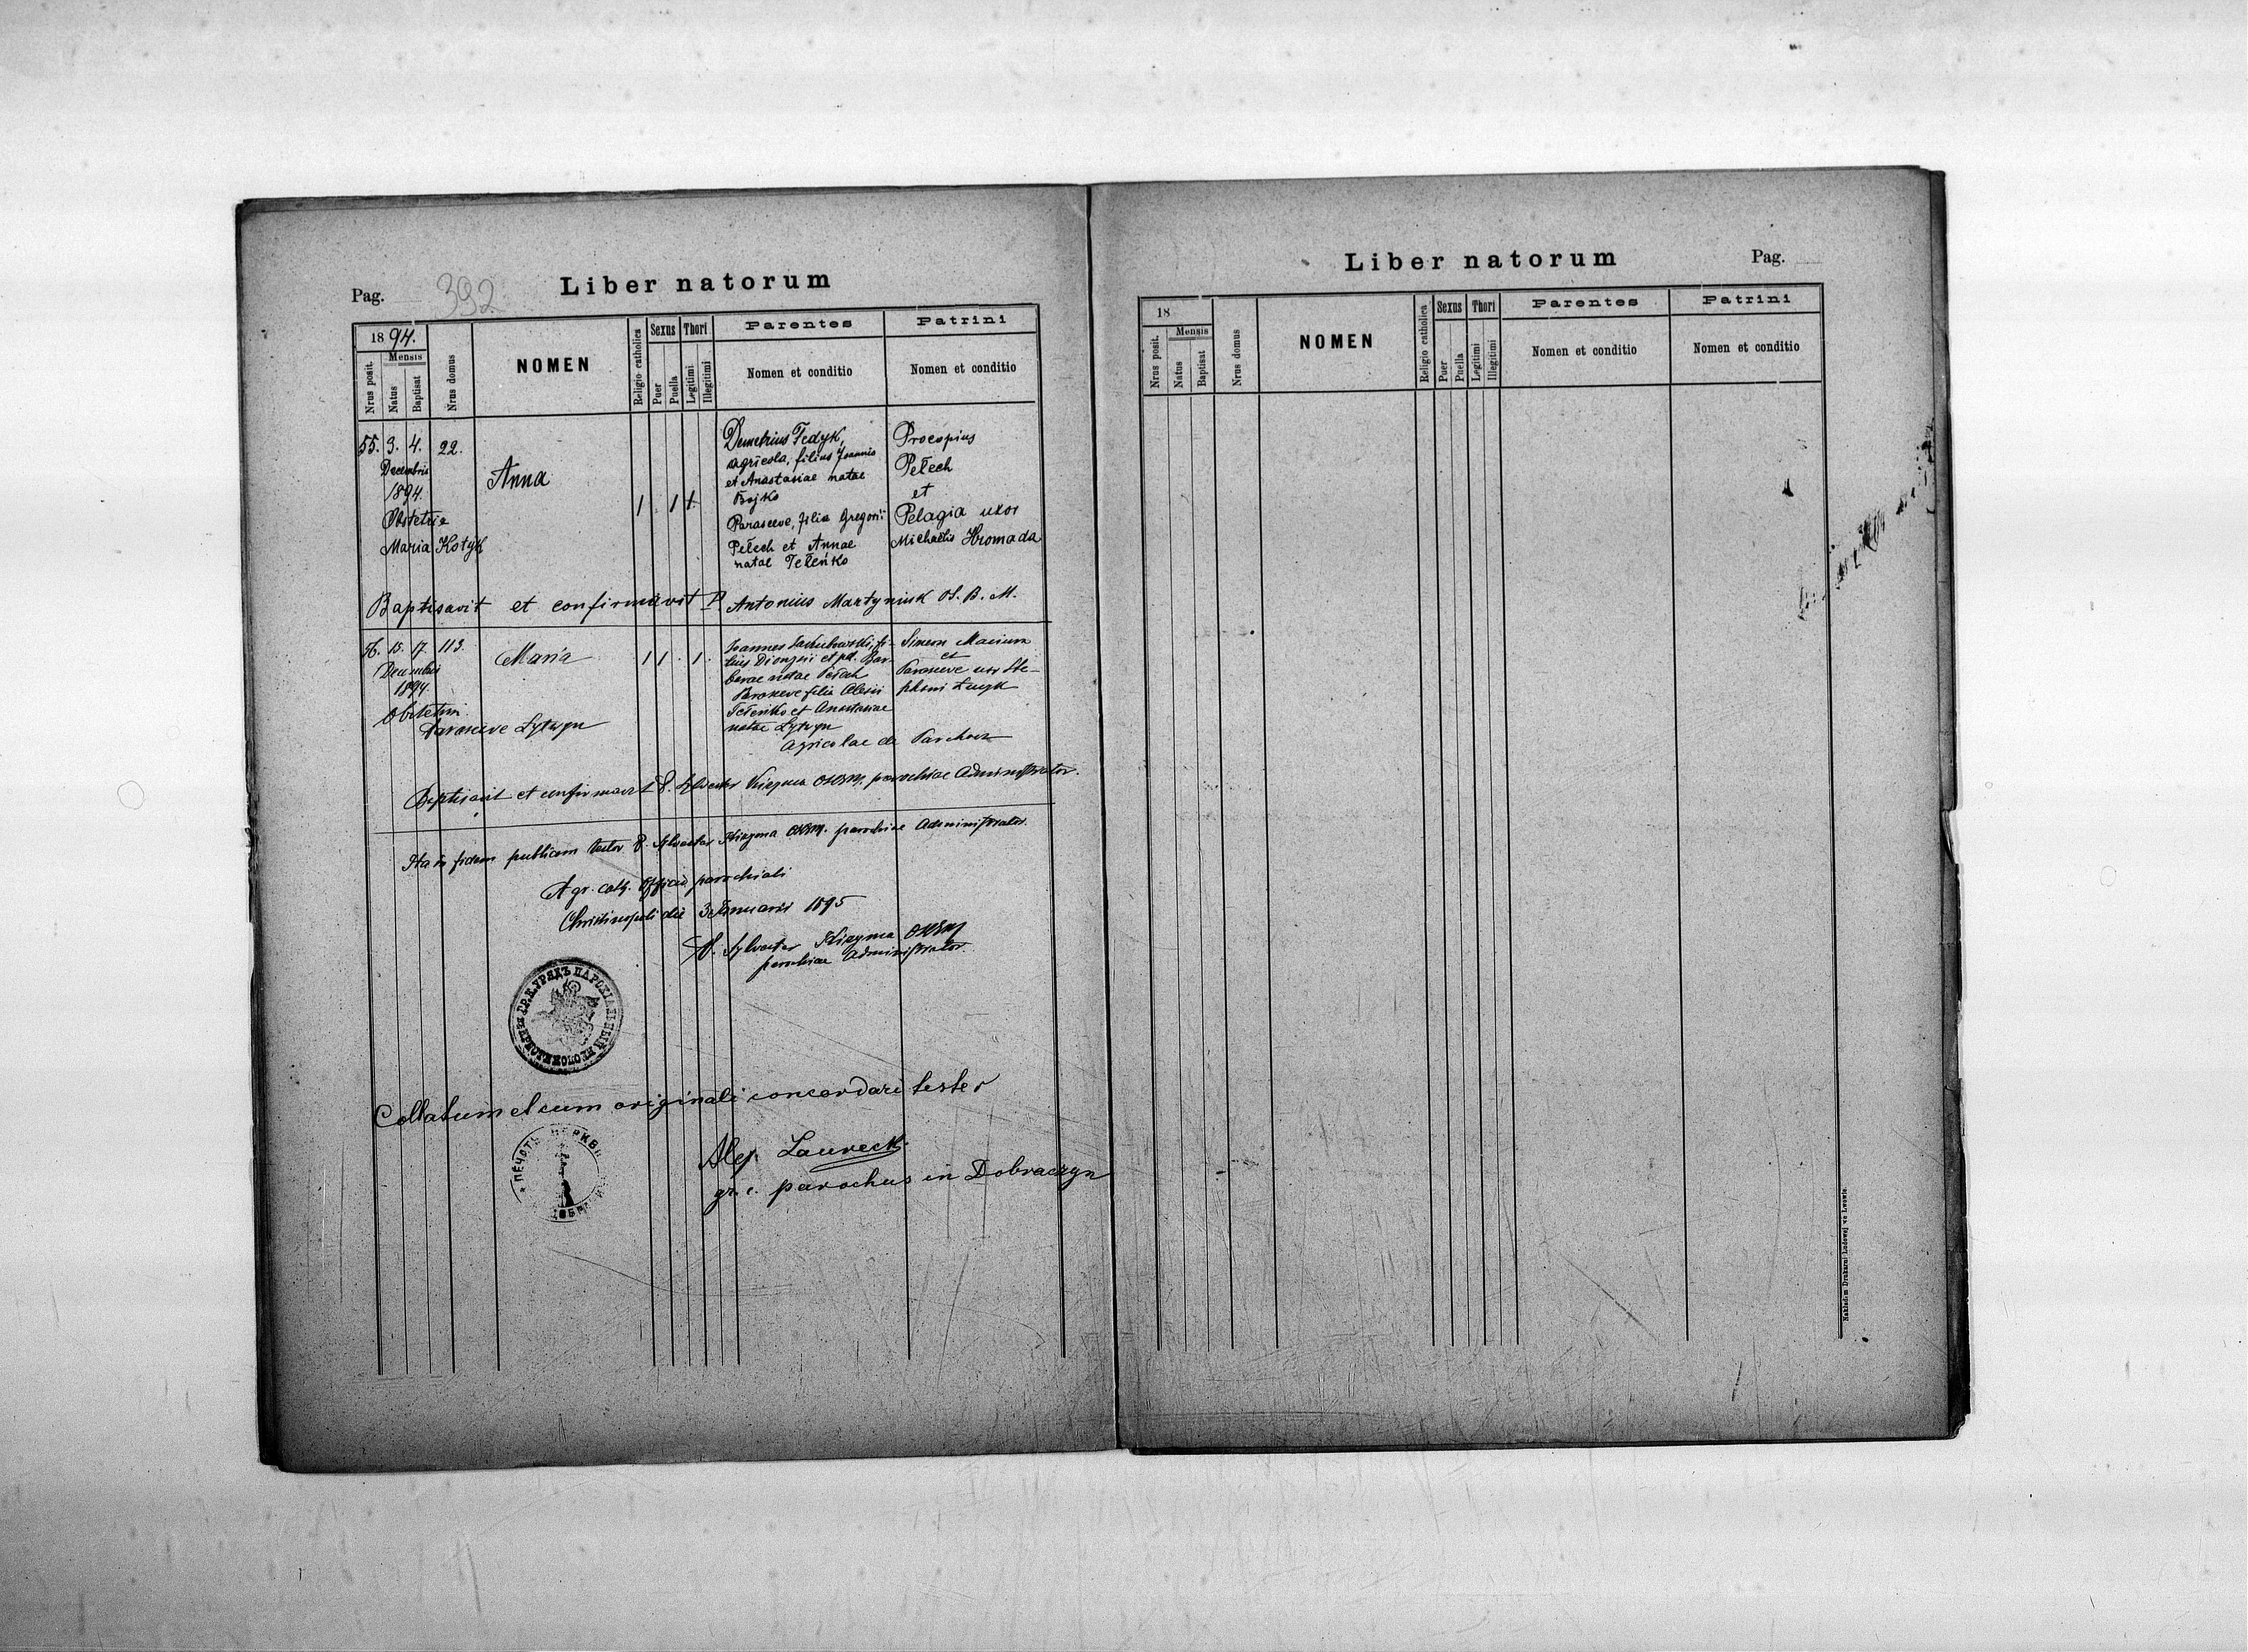 Pag. 392
Liber natorum
1894.
Nrus posit.
Mensis
Natus
Baptisat
Nrus domus
NOMEN
Religio catholica
Sexus
Puer
Puella
Thori
Legitimi
Illegitimi
Parentes
Nomen et conditio
Patrini
Nomen et conditio
55. 3. 4. 22.
Decembris
1894.
Obstetrix
Maria Kotyk
Anna
1 1 1
Demetrius Fedyk,
agricola, filius Joannis
et Anastasiae natae
Bojko
Parasceve, filia Gregorii
Pełech et Annae
natae Teleńko
Procopius
Pełech
et
Pelagia uxor
Michaelis Hromada
Baptisavit et confirmavit P. Antonius Martyniuk O. S. B. M.
56. 15. 17. 113.
Decembris
1894.
Obstetrix
Parasceve Lytwyn
Maria
1 1 1
Joannes Jakubowski, fi-
lius Dionysii et Bar-
barae natae Pełech
Parasceve filia Alexii
Teleńko et Anastasiae
natae Lytwyn
agricolae de Parchacz
Simeon
et
Parasceve uxor Ste-
phani
Baptisavit et confirmavit P. Sylvester Kizyma OSBM. parochiae Administrator.
Ita in fidem publicam testor P. Sylvester Kizyma OSBM. parochiae Administrator.
A gr. cath. Officio parochiali
Christinopoli die 3 Januarii 1895
P. Sylvester Kizyma OSBM
parochiae Administrator.
ГР. К. УРЯДЪ ПАРОХІАЛЬНЫЙ
Collatum et cum originali concordari testor
ПЕЧАТЬ ЦЕРКВИ
Alex. Laurecki
gr. c. parochus in Dobraczyn
Liber natorum
Pag.
18
Nrus posit.
Mensis
Natus
Baptisat
Nrus domus
NOMEN
Religio catholica
Sexus
Puer
Puella
Thori
Legitimi
Illegitimi
Parentes
Nomen et conditio
Patrini
Nomen et conditio
Nakładem Drukarni Ludowej we Lwowie.